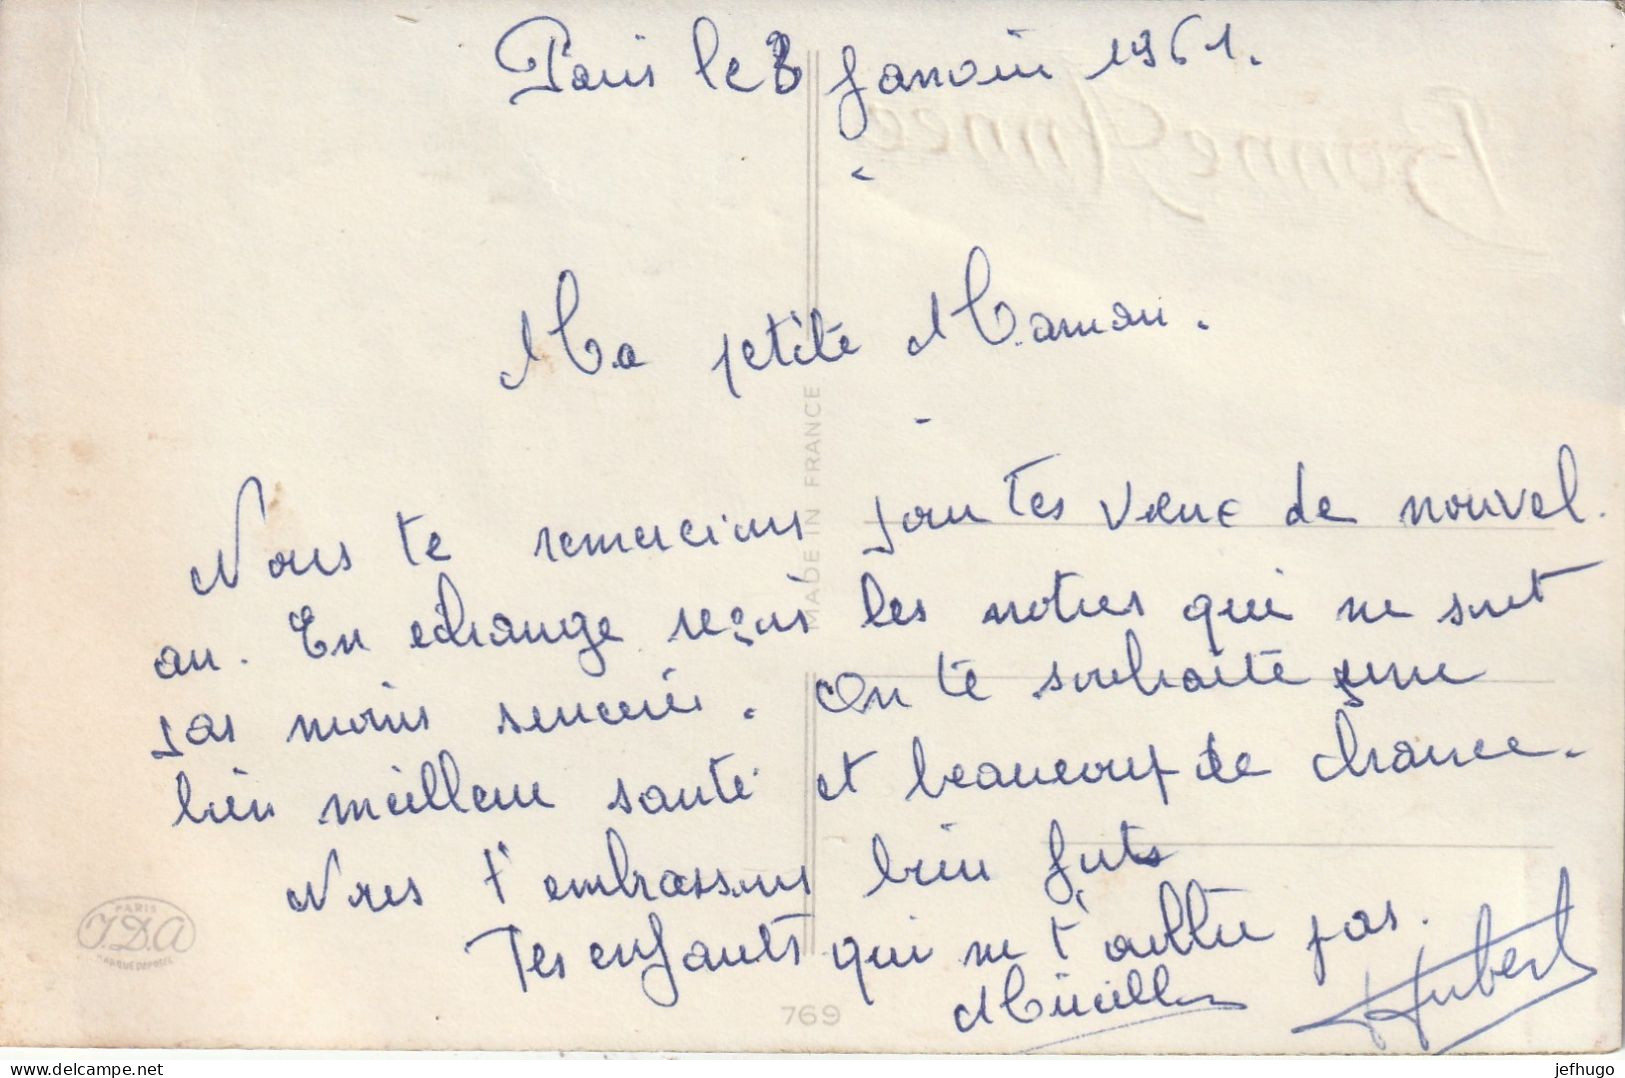 Paris le 3 Janvier 1961.
Bonne Année
Ma petite Maman.
Nous te remercions pour tes vœux de nouvel.
an. En échange reçois les notres qui ne sont
pas moins sincères. On te souhaite une
bien meilleure santé et beaucoup de chance.
Nous t'embrassons bien forts
Tes enfants qui ne t'oublie pas.
Mireille Hubert
MADE IN FRANCE
PARIS
J.D.A
MARQUE DEPOSEE
769
delcampe.net
jefhugo